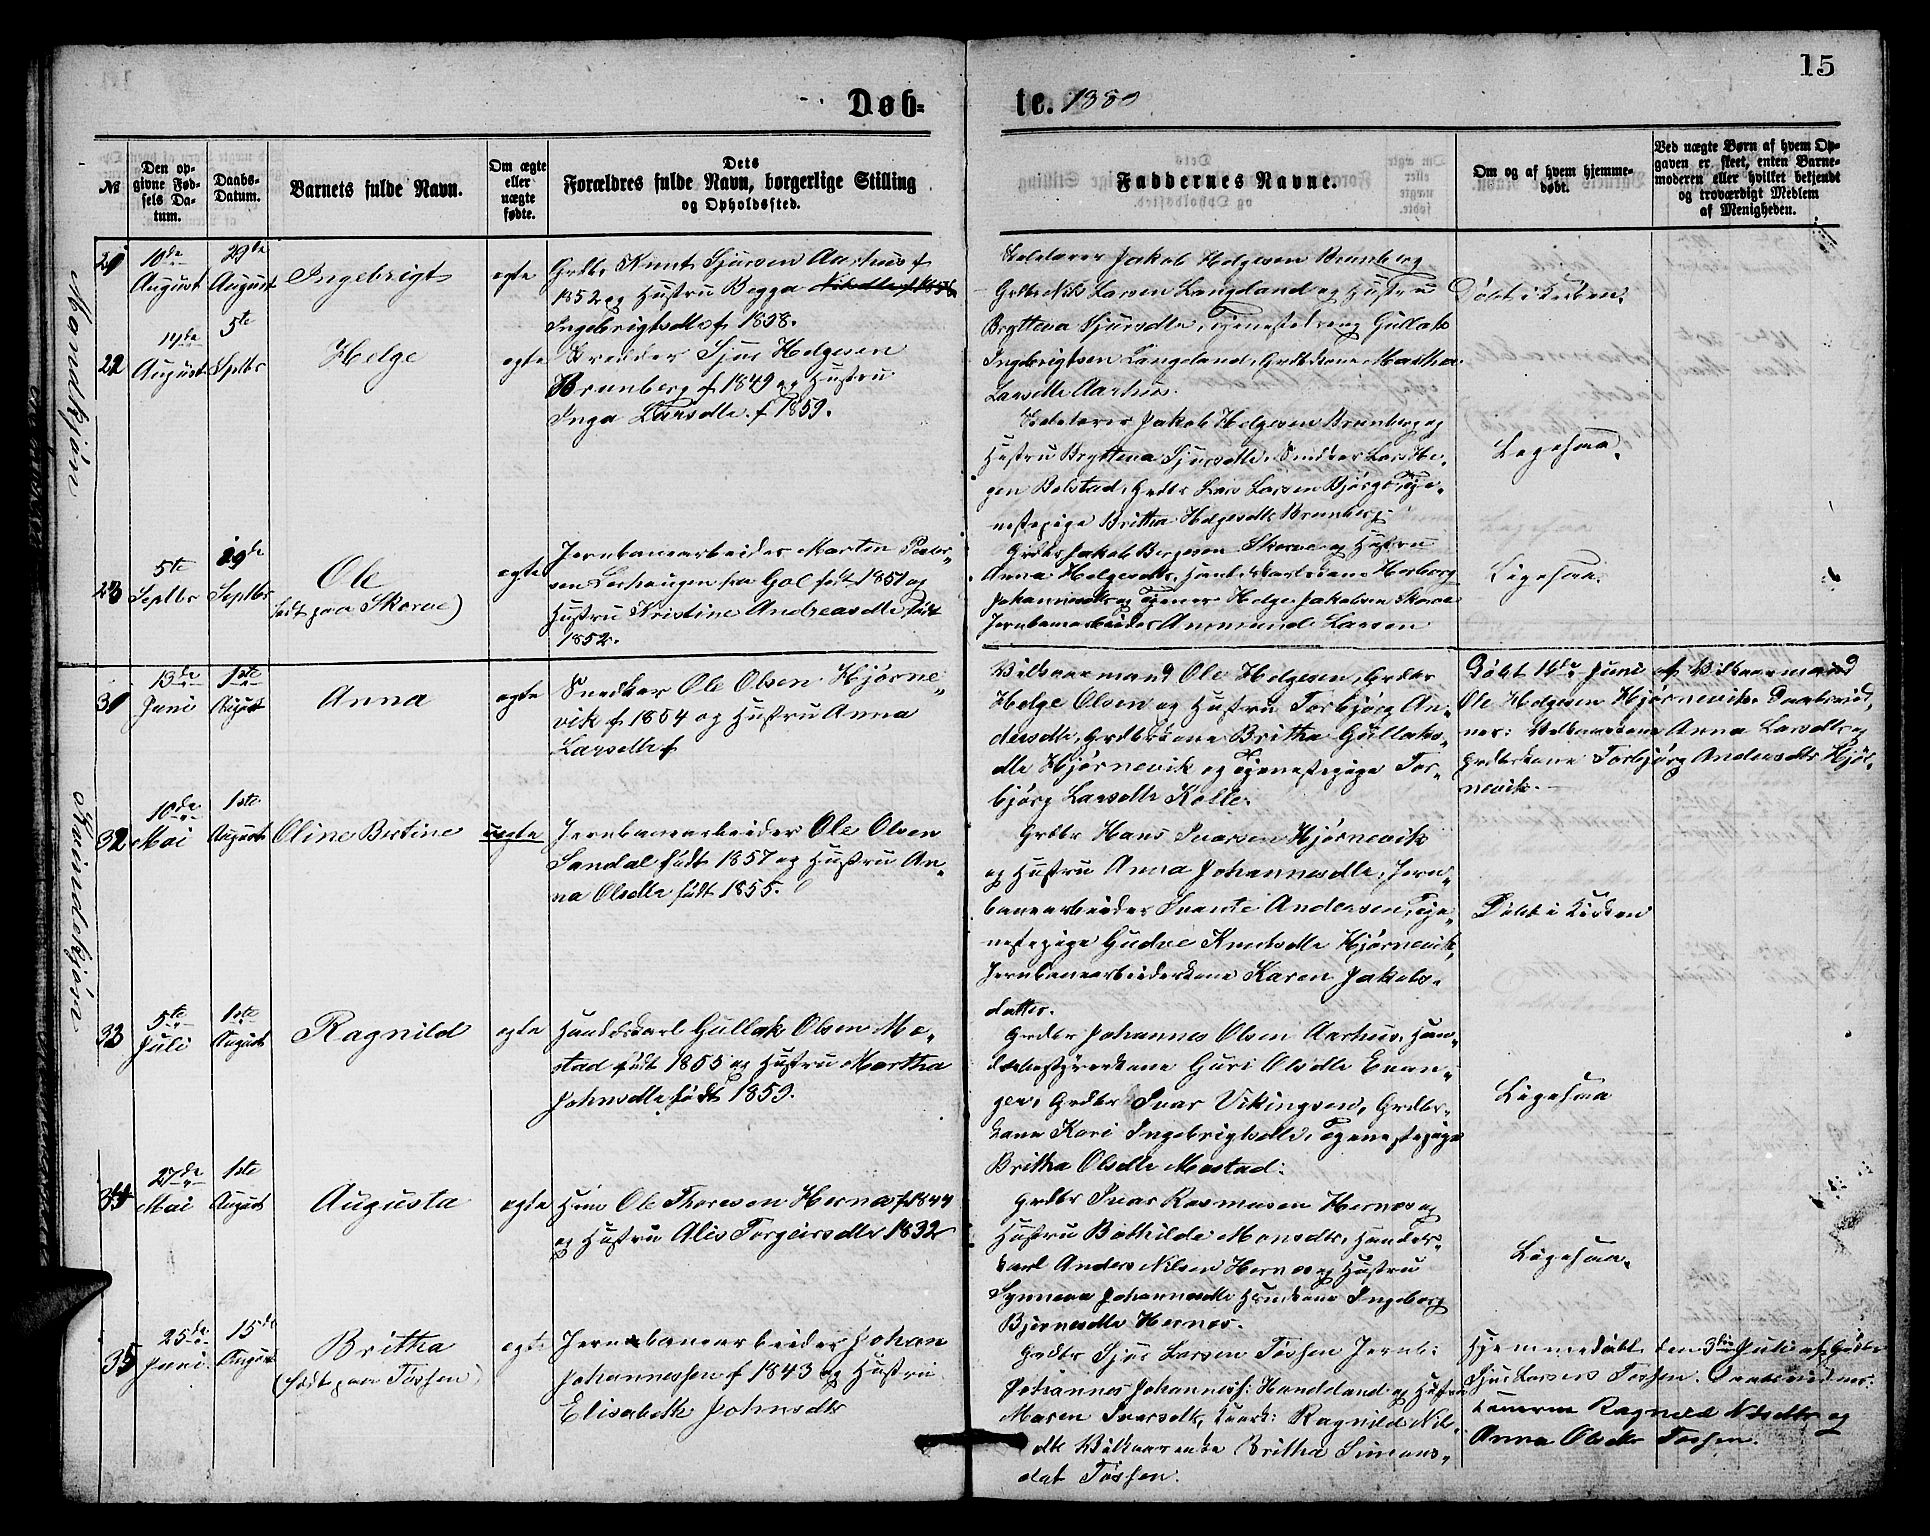 15
Døb-
te. 1880
№
Den op-
givne Fød-
sels Da-
tum.
Daabs-
Datum.
Barnets fulde Navn.
Om ægte
eller
uægte
fødte.
Dets
Forældres fulde Navn, borgerlige Stilling
og Opholdssted.
Faddernes Navne.
Om og af hvem hjemme-
døbt.
Ved uægte Børn af hvem Op-
gaven er skeet, enten Barne-
moderen eller hvilket bekjendt
og troværdigt Medlem
af Menigheden.
Mandkjøn
21
10de
August
29de
August
Ingebrigt
egte
Grdbr. Knut Sjursen Aarhus f
1852 og Hustru Begga
Ingebrigtsdtr f. 1858.
Jakob Helgesen Brunborg
Grdbr Nils Larsen Langeland og Hustru
Brytteva Sjursdtr, Tjenestedreng Gullak
Ingebrigtsen Langeland, Grdbrkone Martha
Larsdtr Aarhus.
Døbt i Kirken.
22
14de
August
5te
Septbr
Helge
egte
Skrædder Sjur Helgesen
Brunborg f 1849 og Hustru
Inga Larsdtr. f 1859.
Jakob Helgesen Brunborg og
Hustru Brytteva Sjursdtr, Snedker Lars
Bolstad, Grdbr Lars Larsen Bjørgo, Tje-
nestepige Britha Helgesdtr Brunborg.
Ligesaa.
23
5te
Septbr
19de
Septbr
Ole
(født paa Skorve)
egte
Jernbanearbeider Martin Peder-
sen fra Gol født 1851 og
Hustru Kristine Andreasdtr født
1852.
Grdbr Jakob Skorve og Hustru
Anna Helgesdtr, Herborg
Johannesdtr og Tjener Helge Jakobsen Skorve
Jernbanearbeider Ammund Larsen
Ligesaa.
Kvindekjøn
31
13de
Juni
1ste
August
Anna
egte
Snedker Ole Olsen Hjørne-
vik f 1854 og Hustru Anna
Larsdtr f
Vilkaarmand Ole Helgesen, Grdbr
Helge Olsen og Hustru Torbjørg An-
dersdtr, Grdbrkone Britha Gullaks-
dtr Hjørnevik og Tjenestepige Tor-
bjørg Larsdtr Kolle.
Døbt 14de Juni af Vilkaarmand
Ole Helgesen Hjørnevik. Daabsvid-
ner: Anna Larsdtr og
Grdbrkone Torbjørg Andersdtr Hjør-
nevik.
32
10de
Mai
1ste
August
Oline Bertine
uegte
Jernbanearbeider Ole Olsen
Sandal født 1857 og Hustru An-
na Olsdtr født 1855.
Grdbr Hans Ivarsen Hjørnevik
og Hustru Anna Johannesdtr, Jern-
banearbeider Svante Andersen, Tje-
nestepige Gudve Knutsdtr Hjørnevik,
Jernbanearbeiderkone Karen Jakobs-
datter.
Døbt i Kirken
33
5te
Juli
1ste
August
Ragnild
egte
Handelskarl Gullak Olsen Mo-
stad født 1855 og Hustru Martha
Johnsdtr født 1859.
Grdbr Johannes Olsen Aarhus, Han-
delsbestyrerkone Guri Olsdtr Evan-
ger, Grdbr Ivar Vikingsen, Grdbr-
kone Kari Ingebrigtsdtr, Tjenestepige
Britha Olsdtr Mostad.
Ligesaa
34
27de
Mai
1ste
August
Augusta
egte
Huus Ole Thoresen Hernæs f 1844
og Hustru Alis Torgeirsdtr 1832
Grdbr Ivar Rasmusen Hernæs og
Hustru Bothilde Monsdtr, Handels-
karl Anders Nilsen Hernæs og Hustru
Synneva Johannesdtr Ingeborg
Bjørnesdtr Hernæs.
Ligesaa.
35
25de
Juni
15de
August
Britha
(født paa Tøssen)
egte
Jernbanearbeider Johan
Johannessen f 1843 og Hustru
Elisabeth Johnsdtr
Grdbr Sjur Larsen Tøssen Jernb:
Johannes Johanness: og Hustru
Maren Ivarsdtr, Ragnild Nils-
dtr Britha Simons-
dat Tøssen.
Hjemmedøbt den 3die Juli af Grdbr
Sjur Larsen Tøssen. Daabsvidner:
Konerne Ragnild Nilsdtr og
Anna Olsdtr Tøssen.